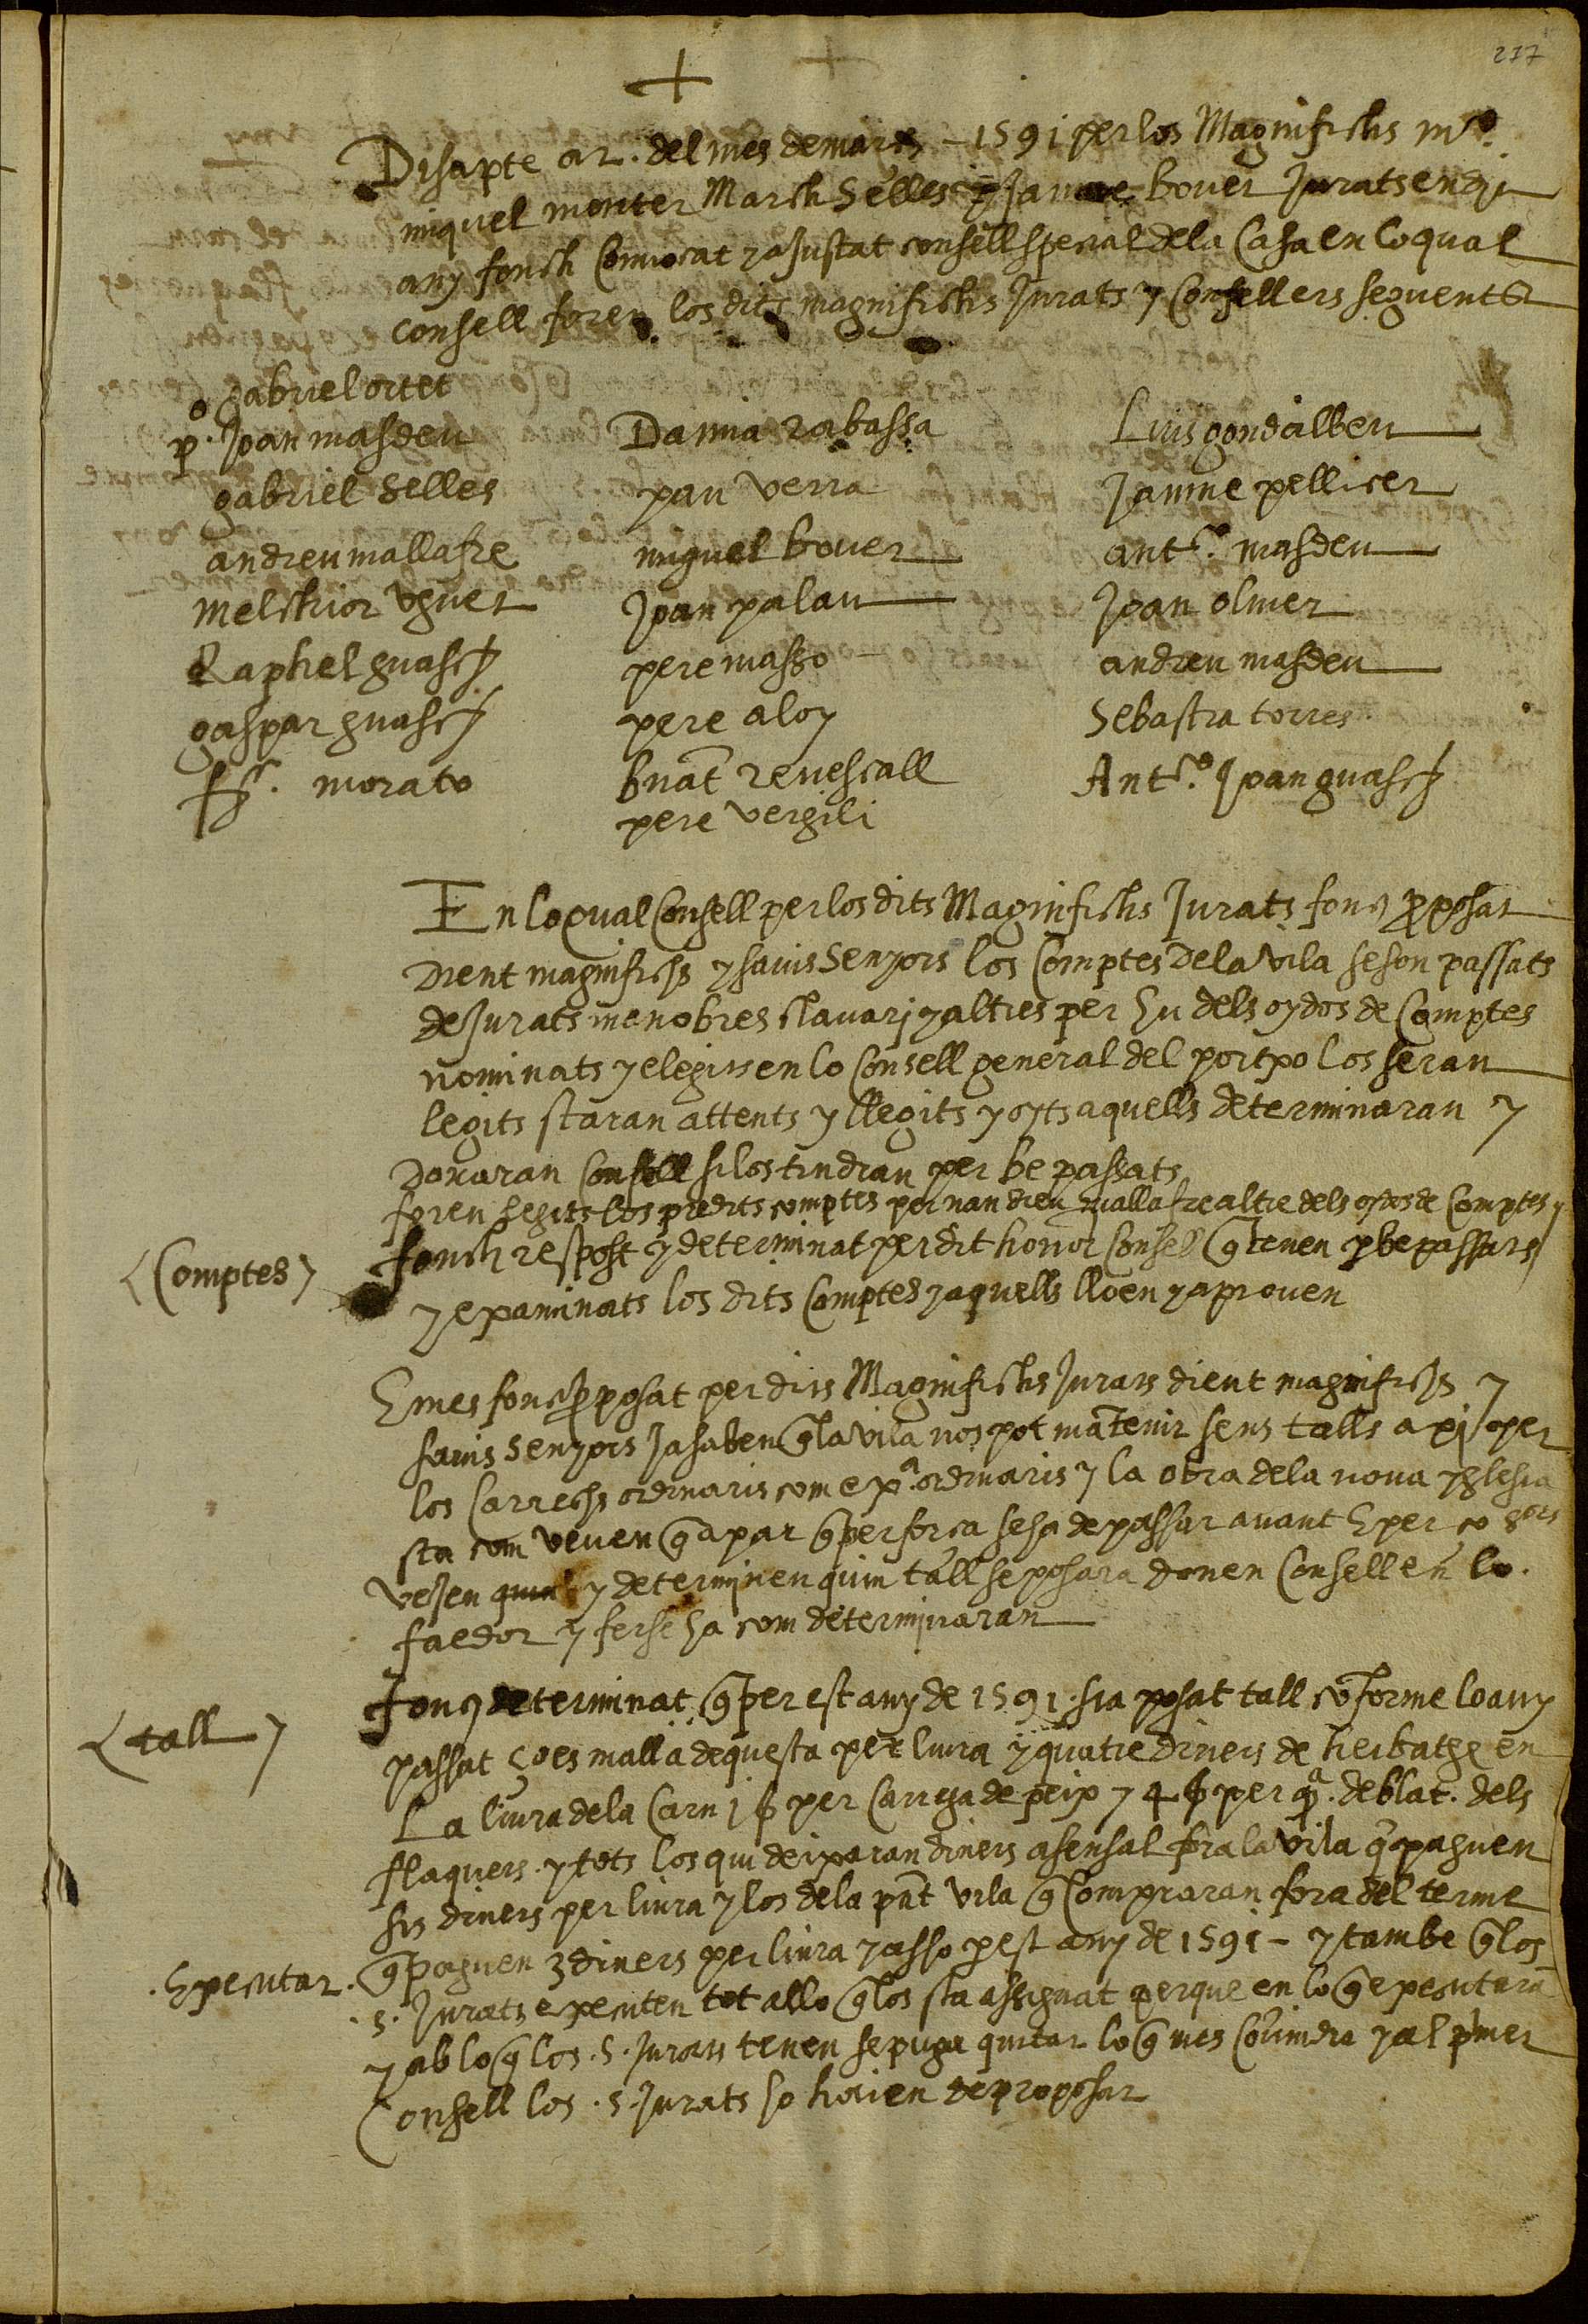 217
+
Disapte a 2. del mes de mars - 1591 per los Magnifichs m.º
miquel monter March Selles y Jaume bouer Jurats en dit
any fonch Conuocat y aJustat consell special dela Casa en loqual
consell foren los dits magnifichs Jurats y Consellers seguents
gabriel ortet
pº. Joan masdeu
gabriel selles
andreu mallafre
melchior Veguer
Raphel guasch
gaspar guasch
morato
Damia rabassa
pau verra
miguel bouer
Joan palau
pere masso
pere aloy
bnat reuescall
pere vergili
Luis gondalbeu
Jaume pellicer
antº. masdeu
Joan oliuer
andreu masdeu
Sebastia torres
Antº. Joan guasch
En loqual Consell per los dits Magnifichs Jurats fonch pposat
dient magnifichs y sauis Senyors los Comptes dela vila se son passats
de Jurats menobres clauari y altres per hu dels oydos de Comptes
nominats y elegits en lo Consell general del port xo los seran
legits staran attents y llegits y oyts aquells determinaran y
donaran Consell si los tindran per be passats
foren legits los predits comptes per nandreu mallafre altre dels oydos de Comptes y
fonch respost y determinat per dit honor Consell q tenen p be passats
<Comptes>
y examinats los dits Comptes y aquells lloen y aprouen
E mes fonch pposat per dits Magnifichs Jurats dient magnifichs y
sauis senyors Ja saben q la vila nos pot mātenir sens talls axi per
los Carrechs ordinaris com exª.ordinaris y la obra dela noua yglesia
sta com veuen q apar q per forca se ha de passar auant E per co sors
vejen quin y determinen quin tall se posara donen Consell en lo
faedor y ferse ha com determinaran
Fonch determinat q per est any de 1591. sia posat tall cōforme lo any
<tall>
passat ço es malla de questa per liura y quatre diners de herbatge en
La liura dela Carn 1 ß per Carrega de peix y 4 ß per qª. de blat. dels
flaquers. y tots los qui deixaran diners a sensal fora la vila q paguen
sis diners per liura y los dela pnt vila q Compraran fora del terme
q paguen 3 diners per liura y asso p est any de 1591 - y tambe q los
.Executar.
.s. Jurats executen tot allo q los sta assignat perque en lo q executarā
y ab lo q los .s. Jurats tenen se puga quitar lo q mes Cōuindra y al pmer
Consell los .s. Jurats ho haien de proposar